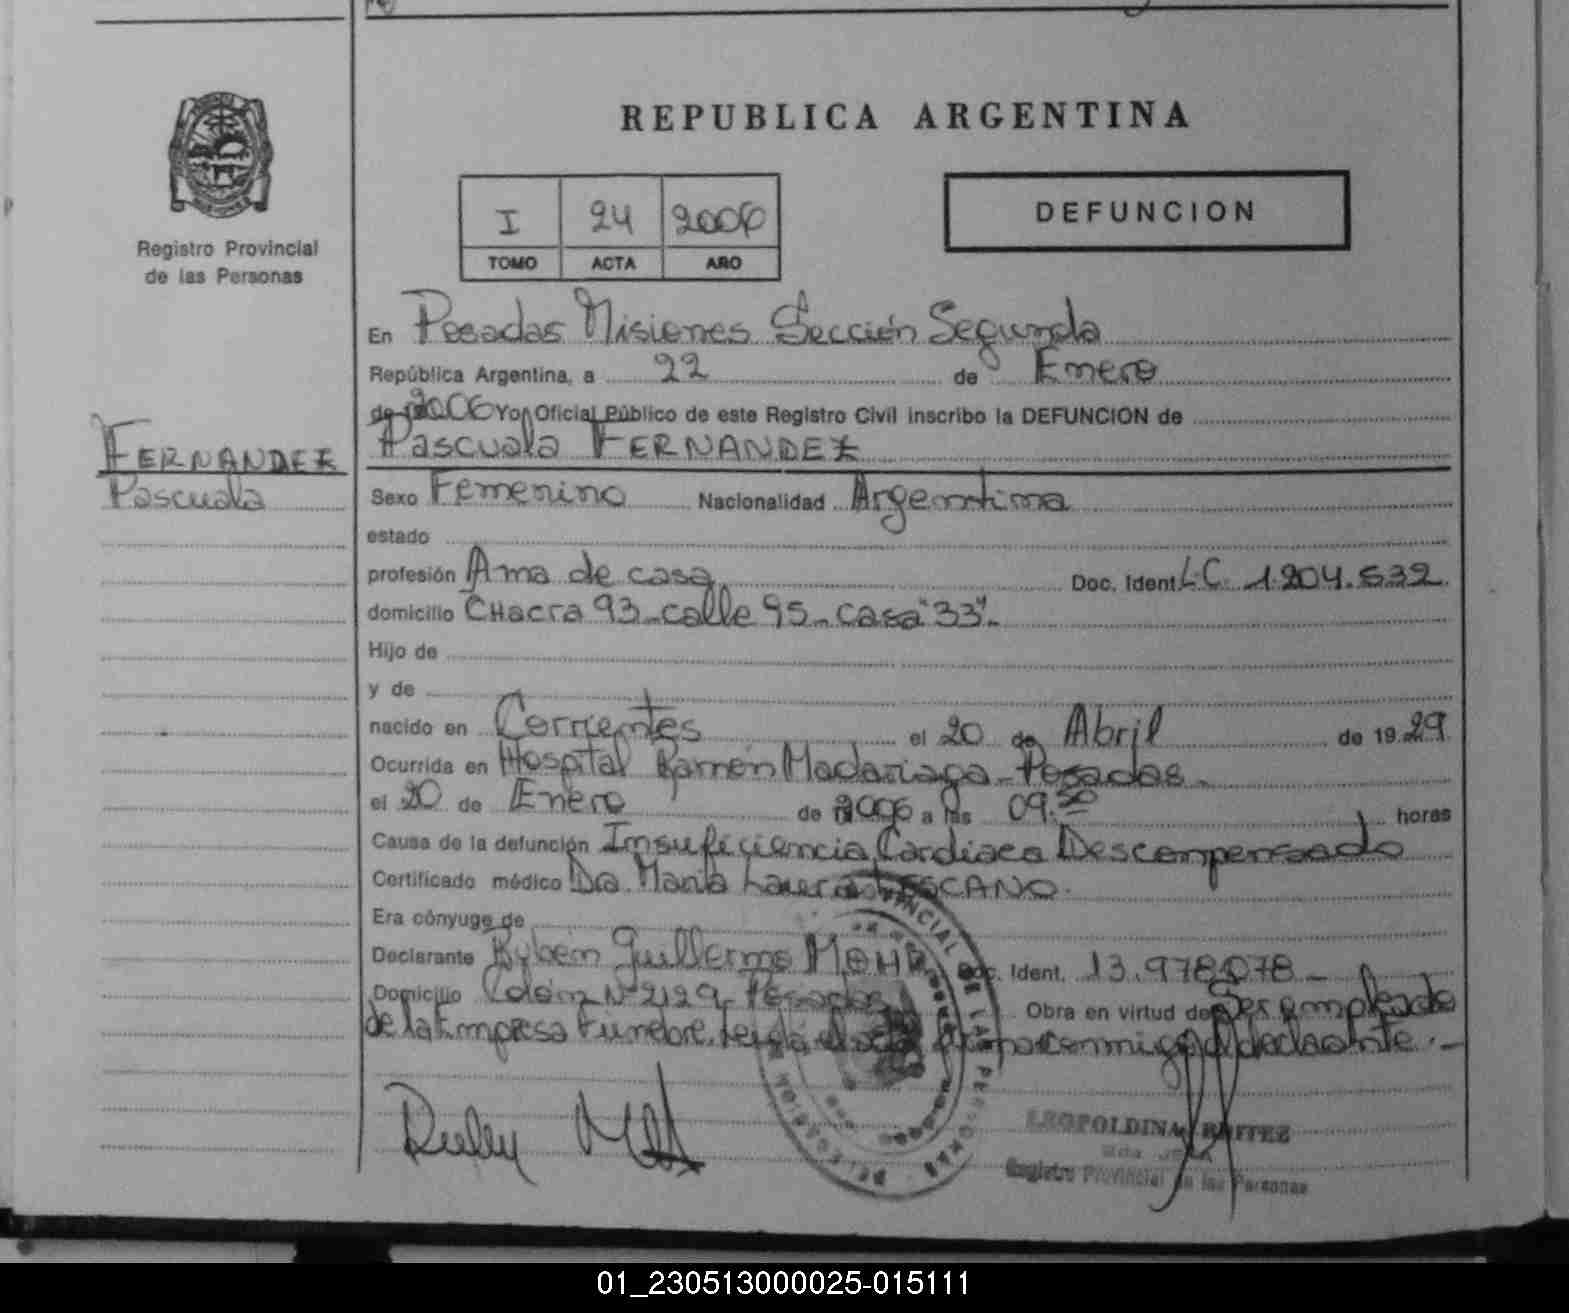 REPUBLICA ARGENTINA
Registro Provincial
de las Personas
I 24 2006
TOMO ACTA AÑO
DEFUNCION
En Posadas Misiones Sección Segunda
República Argentina, a 22 de Enero
de 2006 Yo, Oficial Público de este Registro Civil inscribo la DEFUNCION de
Pascuala FERNANDEZ
FERNANDEZ
Pascuala
Sexo Femenino Nacionalidad Argentina
estado
profesión Ama de casa Doc. Ident. L.C. 1.204.532
domicilio CHacra 93 - calle 95 - casa "33" -
Hijo de
y de
nacido en Corrientes el 20 de Abril de 1929
Ocurrida en Hospital Ramón Madariaga - Posadas -
el 20 de Enero de 2006 a las 09.30 horas
Causa de la defunción Insuficiencia Cardiaca Descompensado
Certificado médico Dra. María Laura LESCANO.
Era cónyuge de
Declarante Rubén Guillermo Doc. Ident. 13.978.078 -
Domicilio Colón Nº 2129 - Posadas Obra en virtud de Ser empleado
de la Empresa Fúnebre. Leída el acta firma conmigo el declarante. -
LEOPOLDINA BENITEZ
Registro Provincial de las Personas
01_230513000025-015111